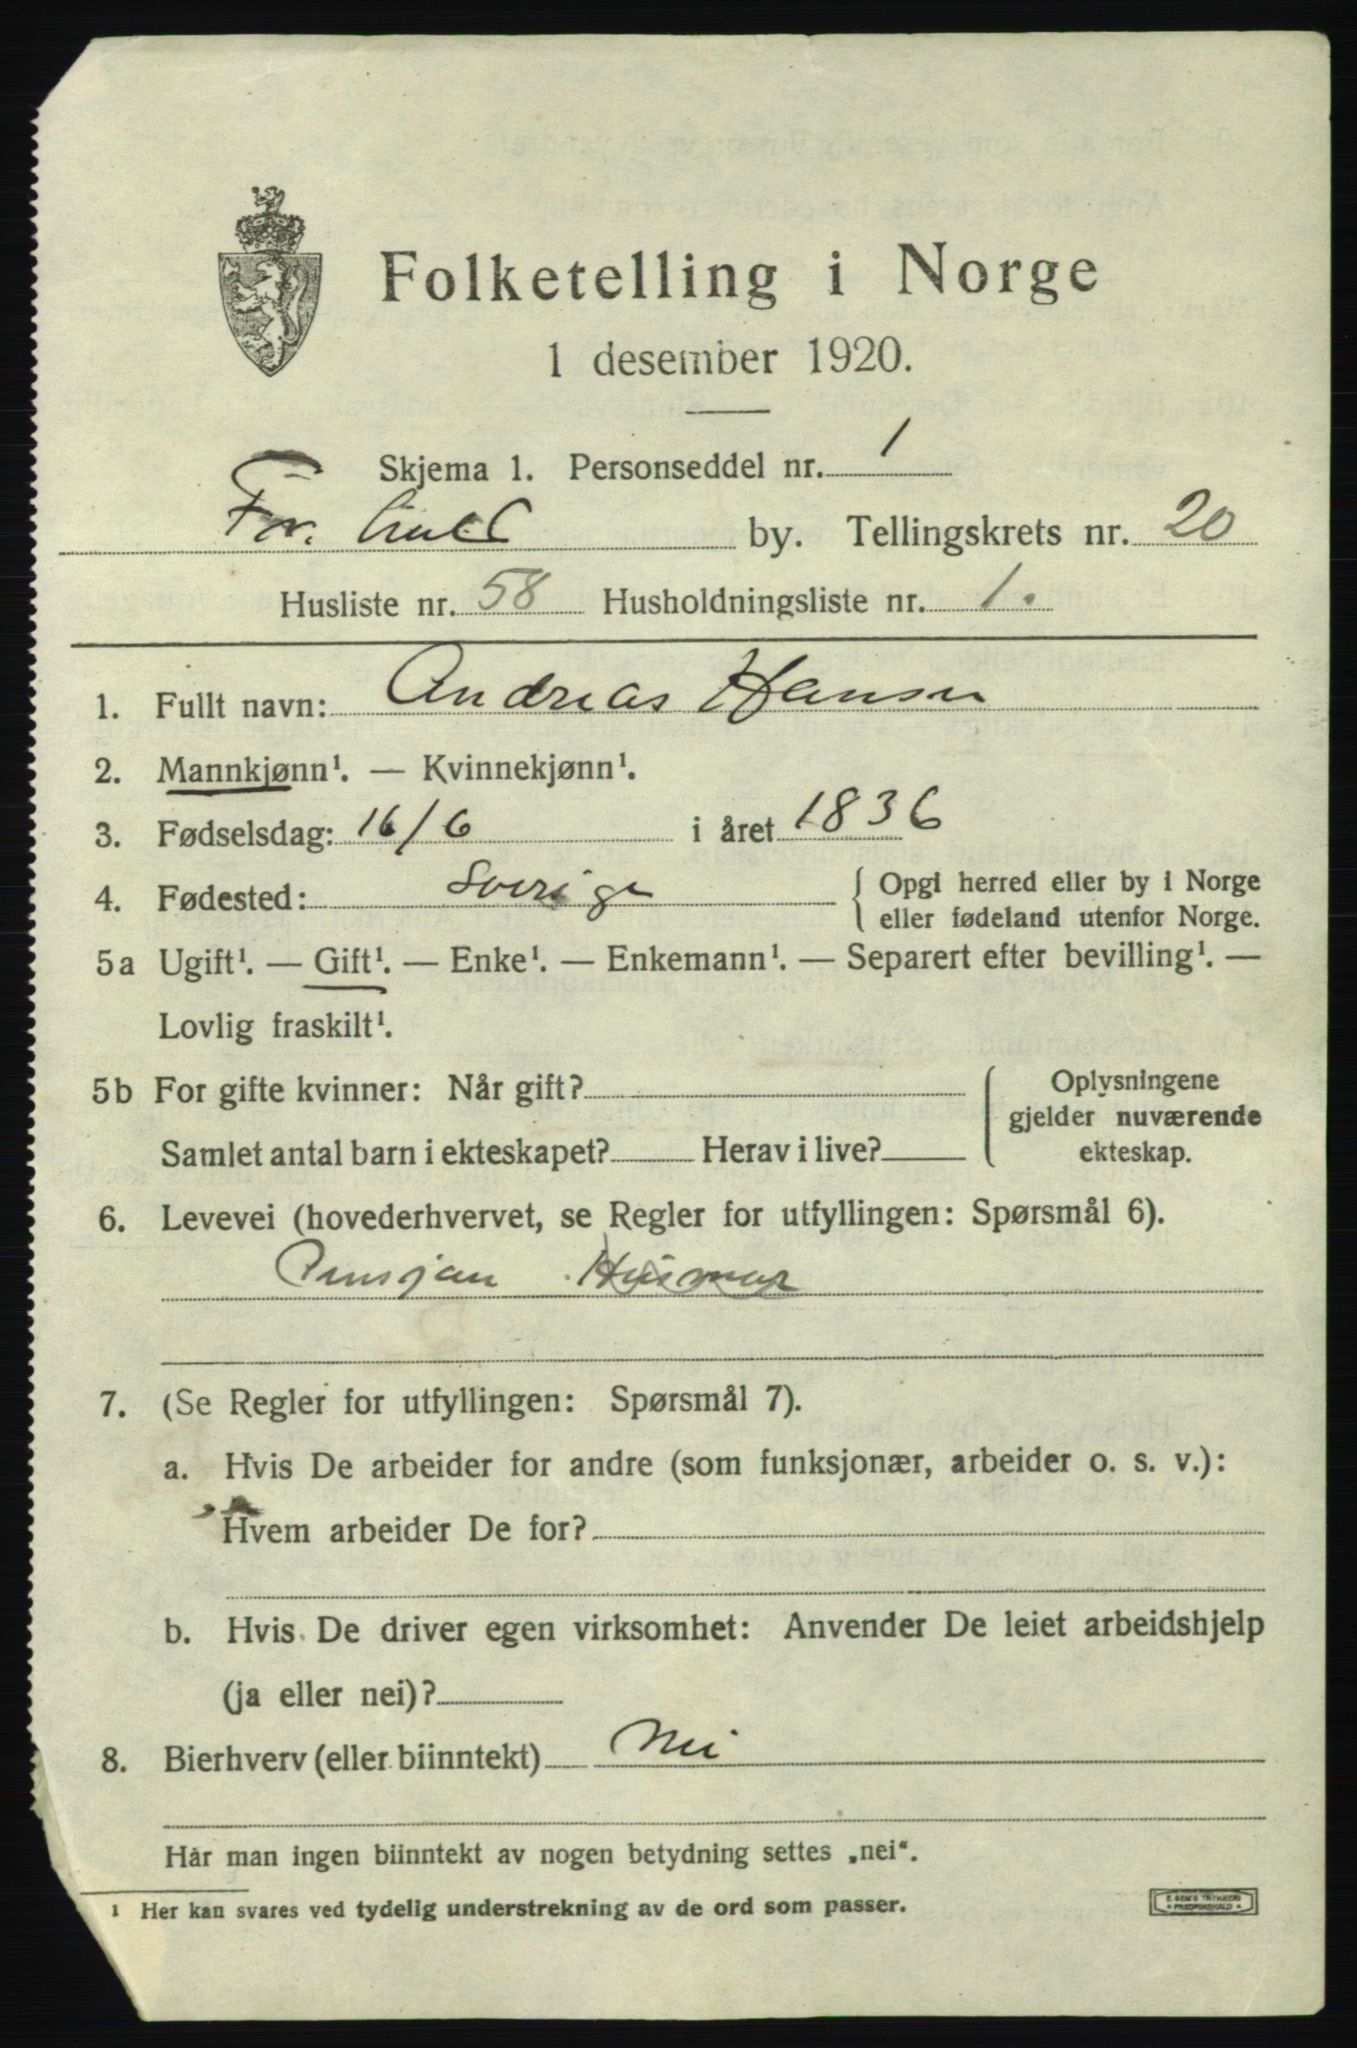 Folketelling i Norge
1 desember 1920.
Skjema 1. Personseddel nr. 1
by. Tellingskrets nr. 20
Husliste nr. 58 Husholdningsliste nr. 1.
1. Fullt navn: Andreas Hansen
2. Mannkjønn¹. — Kvinnekjønn¹.
3. Fødselsdag: 16/6 i året 1836
4. Fødested: Sverige { Opgi herred eller by i Norge
eller fødeland utenfor Norge.
5a Ugift¹. — Gift¹. — Enke¹. — Enkemann¹. — Separert efter bevilling¹. —
Lovlig fraskilt¹.
5b For gifte kvinner: Når gift? { Oplysningene
gjelder nuværende
Samlet antal barn i ekteskapet? Herav i live? ekteskap.
6. Levevei (hovederhvervet, se Regler for utfyllingen: Spørsmål 6).
Pensjon Husmor
7. (Se Regler for utfyllingen: Spørsmål 7).
a. Hvis De arbeider for andre (som funksjonær, arbeider o. s. v.):
Hvem arbeider De for?
b. Hvis De driver egen virksomhet: Anvender De leiet arbeidshjelp
(ja eller nei)?
8. Bierhverv (eller biinntekt) Nei
Hår man ingen biinntekt av nogen betydning settes „nei“.
¹ Her kan svares ved tydelig understrekning av de ord som passer.
E. SEM'S TRYKKERI
FREDRIKSHALD